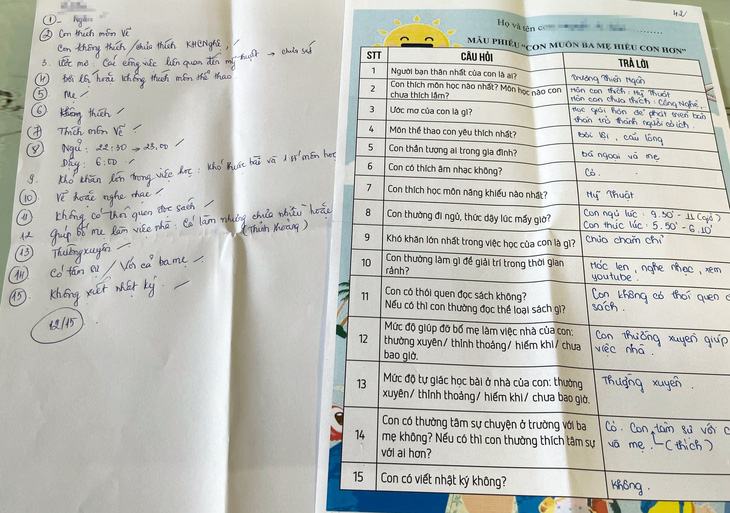 1 - Ngân
2 Con thích môn Vẽ
Con không thích / chưa thích KHCNghệ, /
3. Ước mơ Các công việc liên quan đến mỹ thuật → chưa
4 Bơi lội, hoặc không thích môn thể thao
5 Mẹ /
6 Không thích /
7 Thích môn Vẽ /
8 Ngủ: 22:30 → 23:00 /
Dậy: 6:00 /
9. Khó khăn lớn trong việc học: khó thuộc bài và 1 số môn học
10 Vẽ hoặc nghe nhạc /
11 Không có thói quen đọc sách /
12 Giúp bố mẹ làm việc nhà: Có làm nhưng chưa nhiều hoặc
(Thỉnh thoảng)
13 Thường xuyên /
14 Có tâm sự / Với cả ba mẹ /
15. Không viết nhật ký. /
12/15
42/
Họ và tên con
MẪU PHIẾU “CON MUỐN BA MẸ HIỂU CON HƠN”
STT CÂU HỎI TRẢ LỜI
1 Người bạn thân nhất của con là ai? Trương Thiên Ngân
2 Con thích môn học nào nhất? Môn học nào con chưa thích lắm? Môn con thích: Mỹ Thuật
Môn con chưa thích: Công Nghệ,
3 Ước mơ của con là gì? Học giỏi hơn để phát triển bản
thân trở thành người có ích.
4 Môn thể thao con yêu thích nhất? Bơi lội, cầu lông
5 Con thần tượng ai trong gia đình? bà ngoại và mẹ
6 Con có thích âm nhạc không? Có.
7 Con thích học môn năng khiếu nào nhất? Mỹ Thuật
8 Con thường đi ngủ, thức dậy lúc mấy giờ? Con ngủ lúc: 9.30' - 11 (giờ)
Con thức lúc: 5.50' - 6.10'
9 Khó khăn lớn nhất trong việc học của con là gì? Chưa chăm chỉ
10 Con thường làm gì để giải trí trong thời gian
rảnh? Móc len, nghe nhạc, xem
youtube.
11 Con có thói quen đọc sách không?
Nếu có thì con thường đọc thể loại sách gì? Con không có thói quen
sách.
12 Mức độ giúp đỡ bố mẹ làm việc nhà của con:
thường xuyên/ thỉnh thoảng/ hiếm khi/ chưa
bao giờ. Con thường xuyên giúp
việc nhà.
13 Mức độ tự giác học bài ở nhà của con: thường
xuyên/ thỉnh thoảng/ hiếm khi/ chưa bao giờ. Thường xuyên.
14 Con có thường tâm sự chuyện ở trường với ba
mẹ không? Nếu có thì con thường thích tâm sự
với ai hơn? Có. Con tâm sự với
và mẹ. (thích)
15 Con có viết nhật ký không? Không.